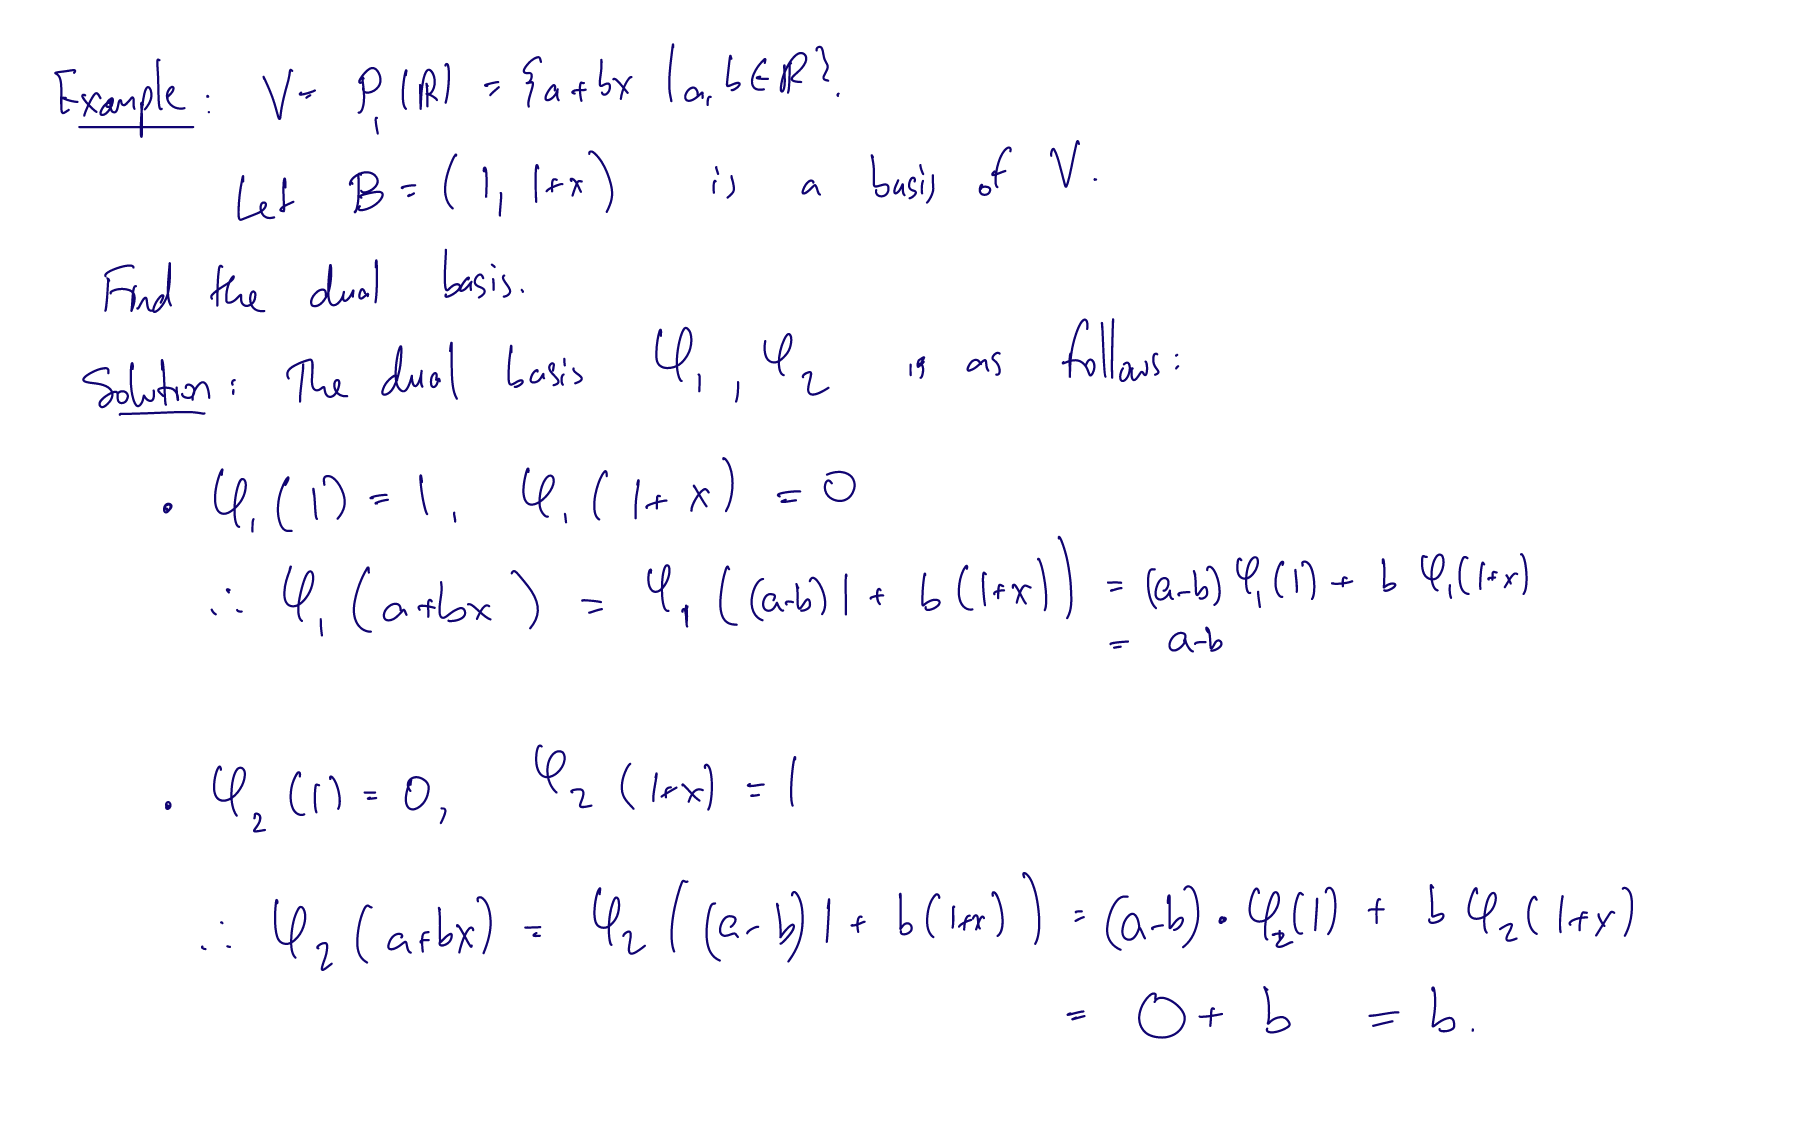 Example: V = P₁(ℝ) = {a+bx | a, b∈ℝ}.
Let B = (1, 1+x) is a basis of V.
Find the dual basis.
Solution: The dual basis φ₁, φ₂ is as follows:
• φ₁(1) = 1, φ₁(1+x) = 0
∴ φ₁(a+bx) = φ₁((a-b)1 + b(1+x)) = (a-b)φ₁(1) + b φ₁(1+x)
= a-b
• φ₂(1) = 0, φ₂(1+x) = 1
∴ φ₂(a+bx) = φ₂((a-b)1 + b(1+x)) = (a-b)·φ₂(1) + b φ₂(1+x)
= 0 + b = b.